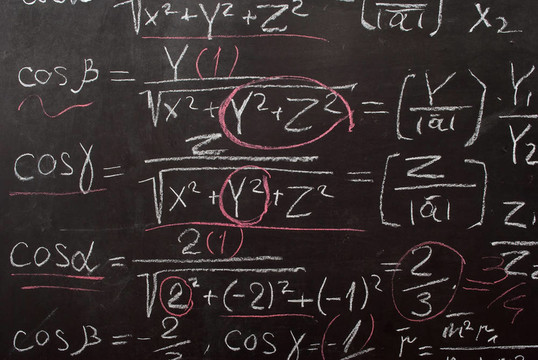 √X²+Y²+Z² |ā| X₂
cos β = Y (1) / √X²+Y²+Z² = [Y / |ā|] · Y₁ / Y₂
cosγ = Z / √X²+Y²+Z² = [Z / |ā|]
cosα = 2 (1) / √2²+(-2)²+(-1)² = 2/3
cos β = - 2/3, cos γ = -1